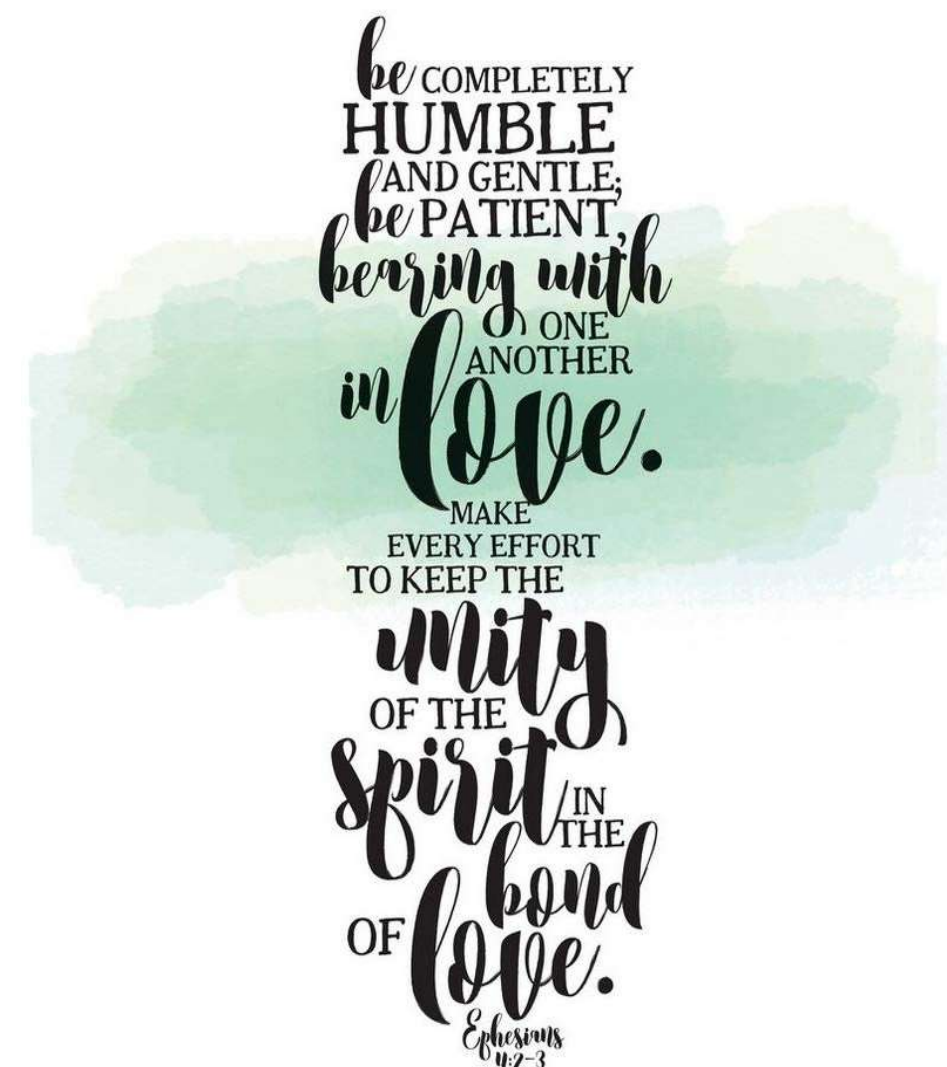 be COMPLETELY
HUMBLE
AND GENTLE;
be PATIENT,
bearing with
ONE
ANOTHER
in love.
MAKE
EVERY EFFORT
TO KEEP THE
unity
OF THE
spirit
IN
THE
bond
OF love.
Ephesians
4:2-3